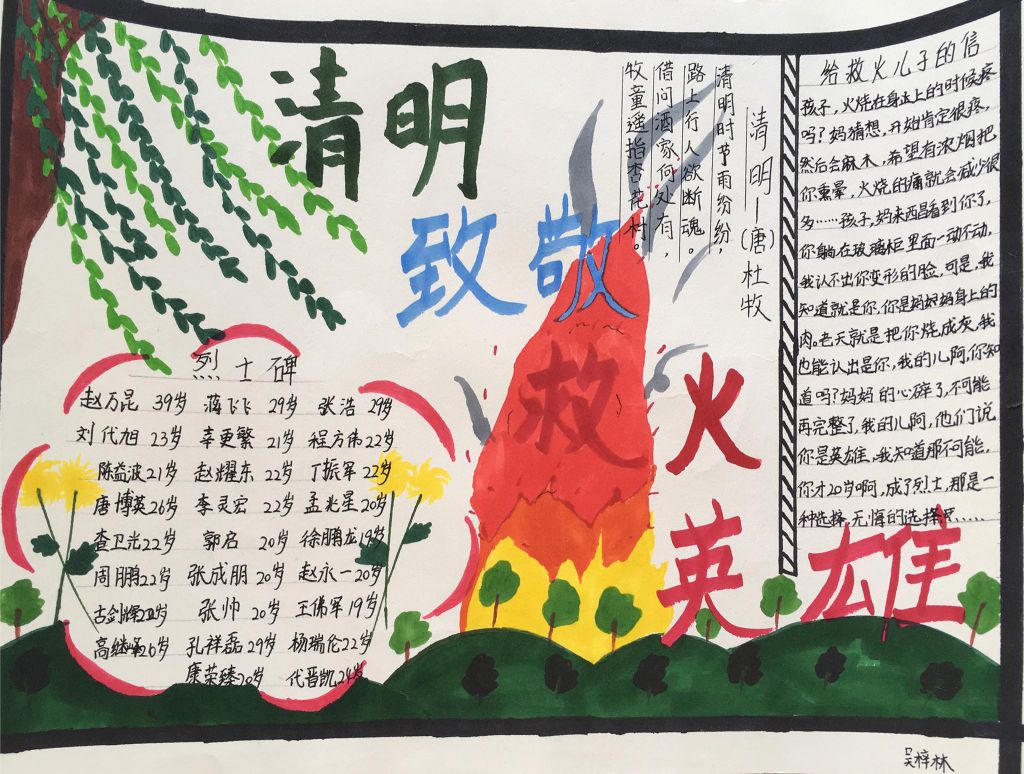 清明
致敬
救火
英雄
清明—(唐)杜牧
清明时节雨纷纷，
路上行人欲断魂。
借问酒家何处有，
牧童遥指杏花村。
烈士碑
赵万昆 39岁 蒋飞飞 29岁 张浩 29岁
刘代旭 23岁 幸更繁 21岁 程方伟 22岁
陈益波 21岁 赵耀东 22岁 丁振军 22岁
唐博英 26岁 李灵宏 22岁 孟兆星 20岁
查卫光 22岁 郭启 20岁 徐鹏龙 19岁
周鹏 22岁 张成朋 20岁 赵永一 20岁
古剑辉 张帅 20岁 王佛军 19岁
高继 26岁 孔祥磊 29岁 杨瑞伦 22岁
康荣臻 20岁 代晋凯 24岁
给救火儿子的信
孩子，火烧在身上的时候疼
吗？妈猜想，开始肯定很疼，
然后会麻木，希望有浓烟把
你熏晕，火烧的痛就会减少很
多……孩子，妈来西昌看到你了，
你躺在玻璃柜里面一动不动，
我认不出你变形的脸，可是，我
知道就是你，你是妈妈身上的
肉，老天就是把你烧成灰，我
也能认出是你，我的儿阿，你知
道吗？妈妈的心碎了，不可能
再完整了，我的儿阿，他们说
你是英雄，我知道那不可能，
你才20岁啊，成了烈士，那是一
种选择，无悔的选择
吴梓林